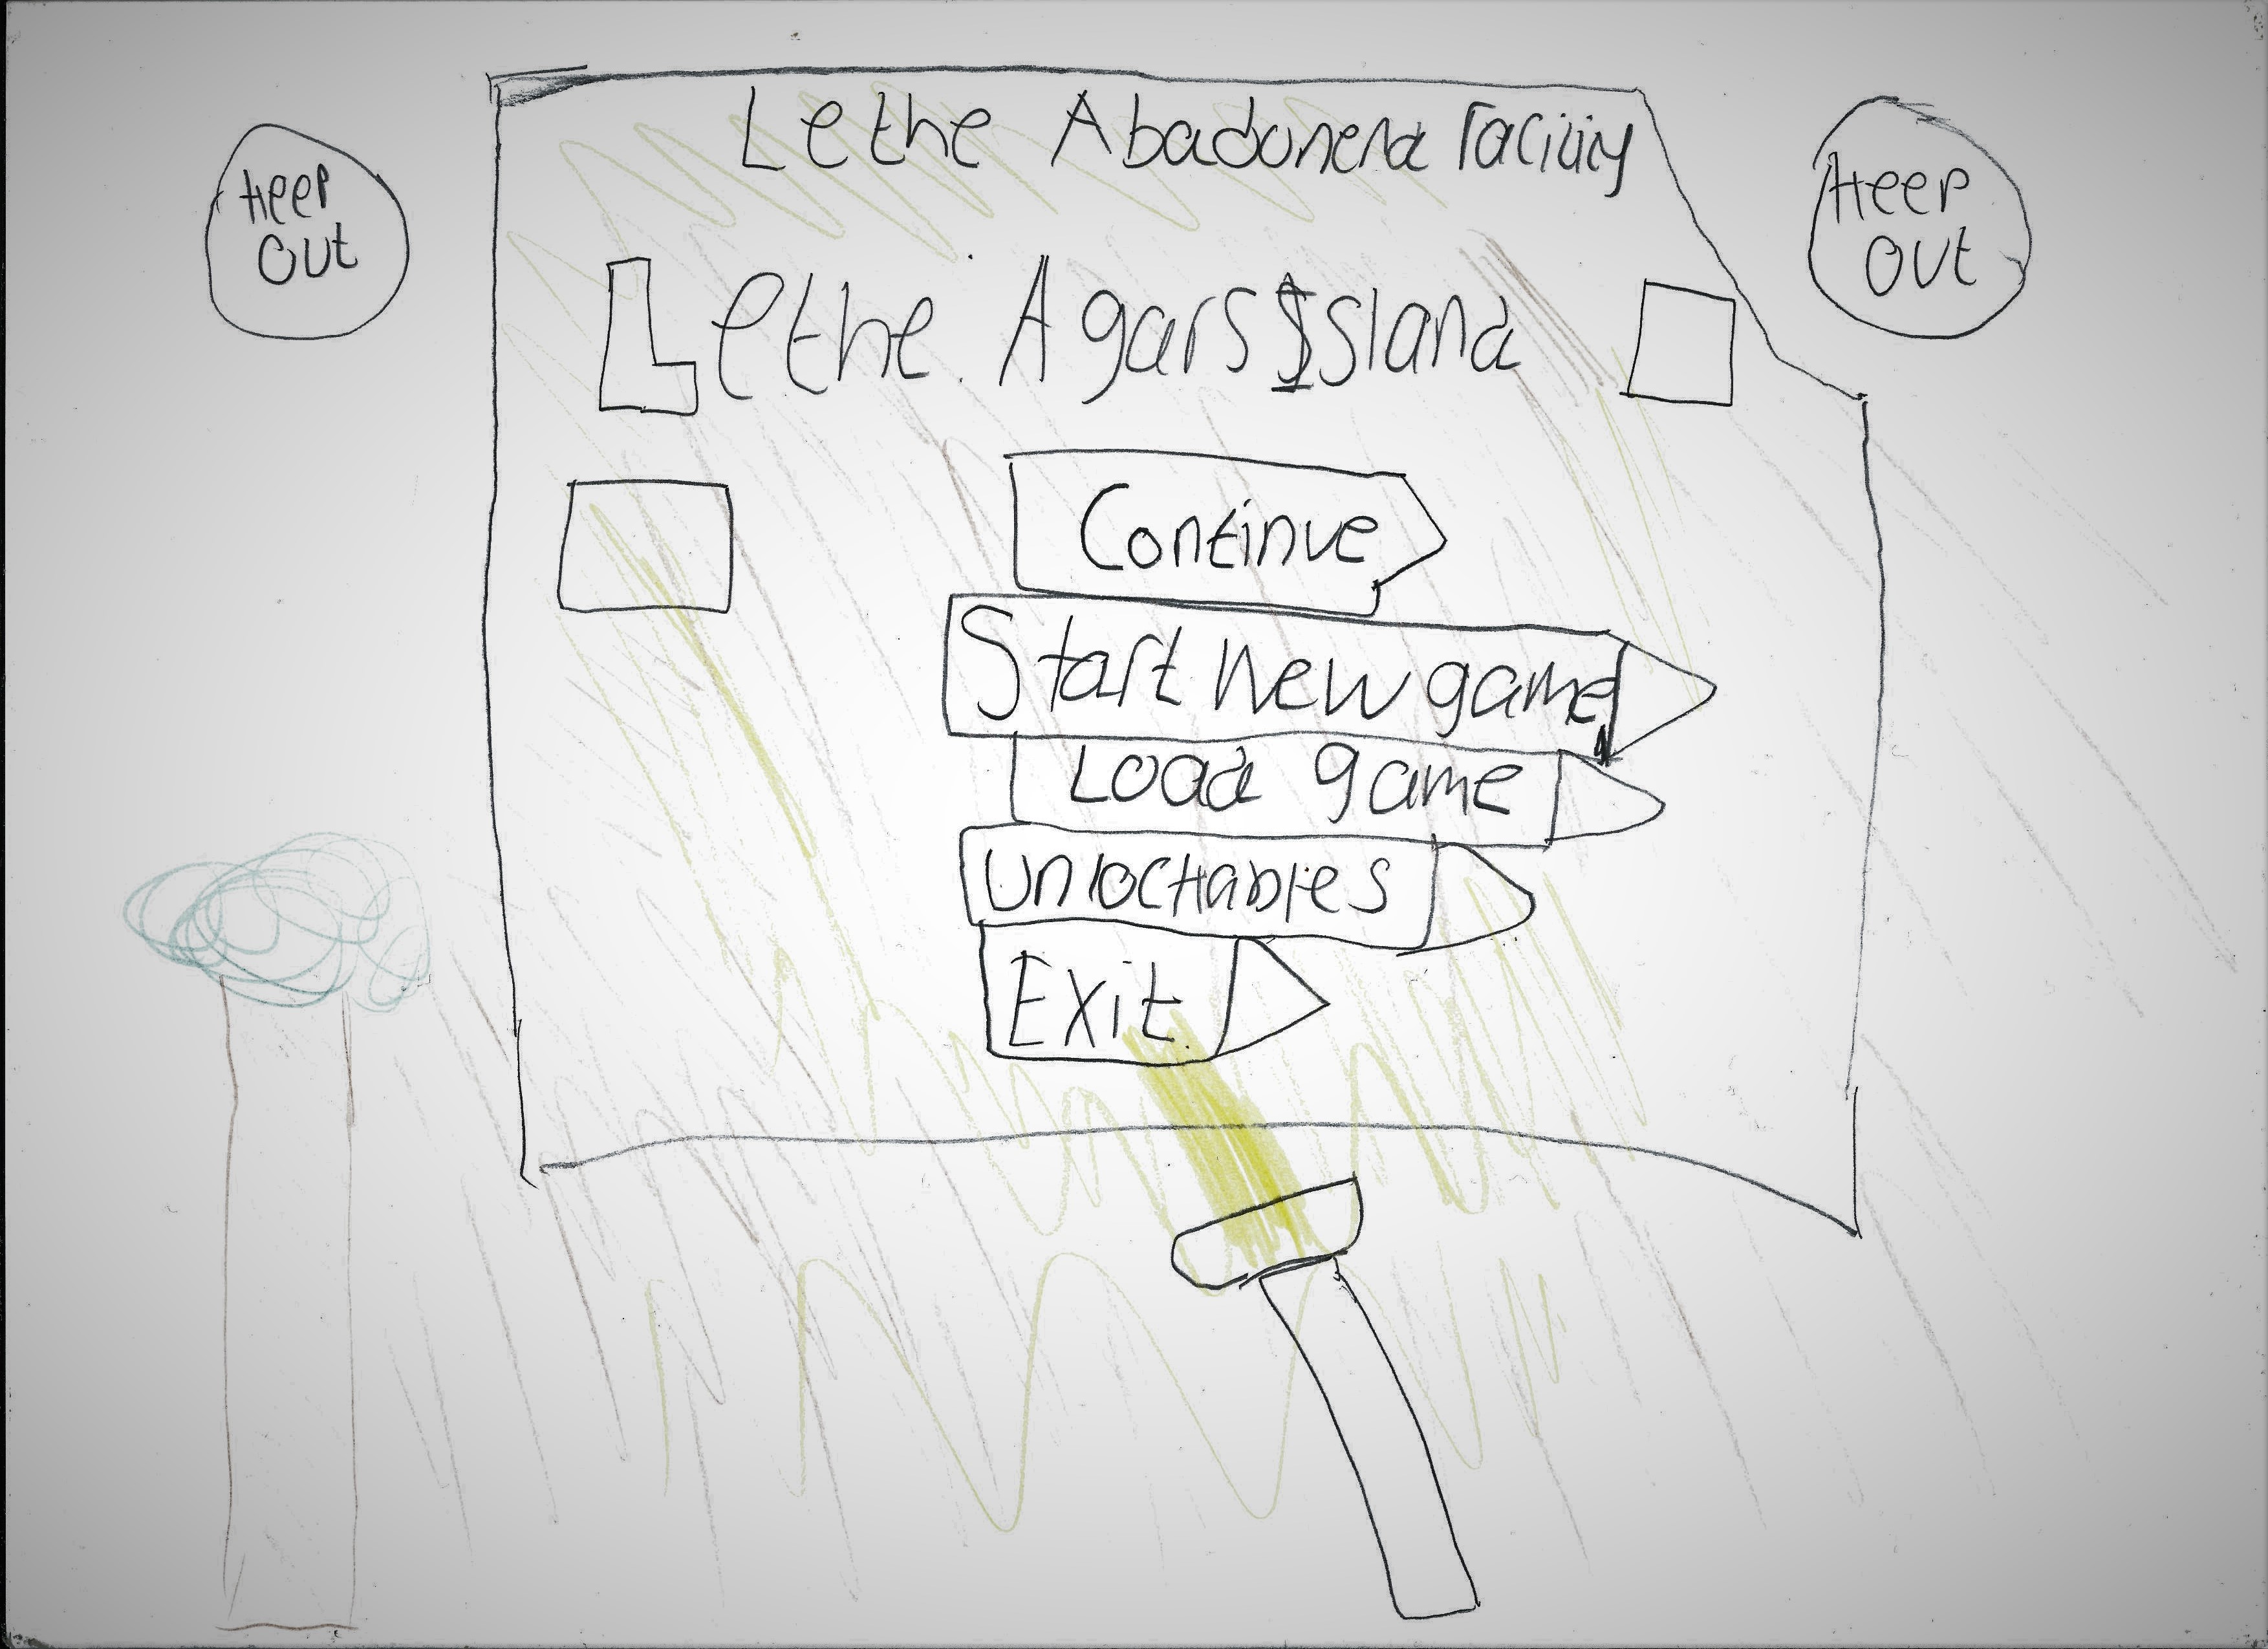 Lethe Abadonend Facility
Heep
Out
Heep
Out
Lethe Agars Island
Continue
Start New game
Load game
UnlocHables
Exit